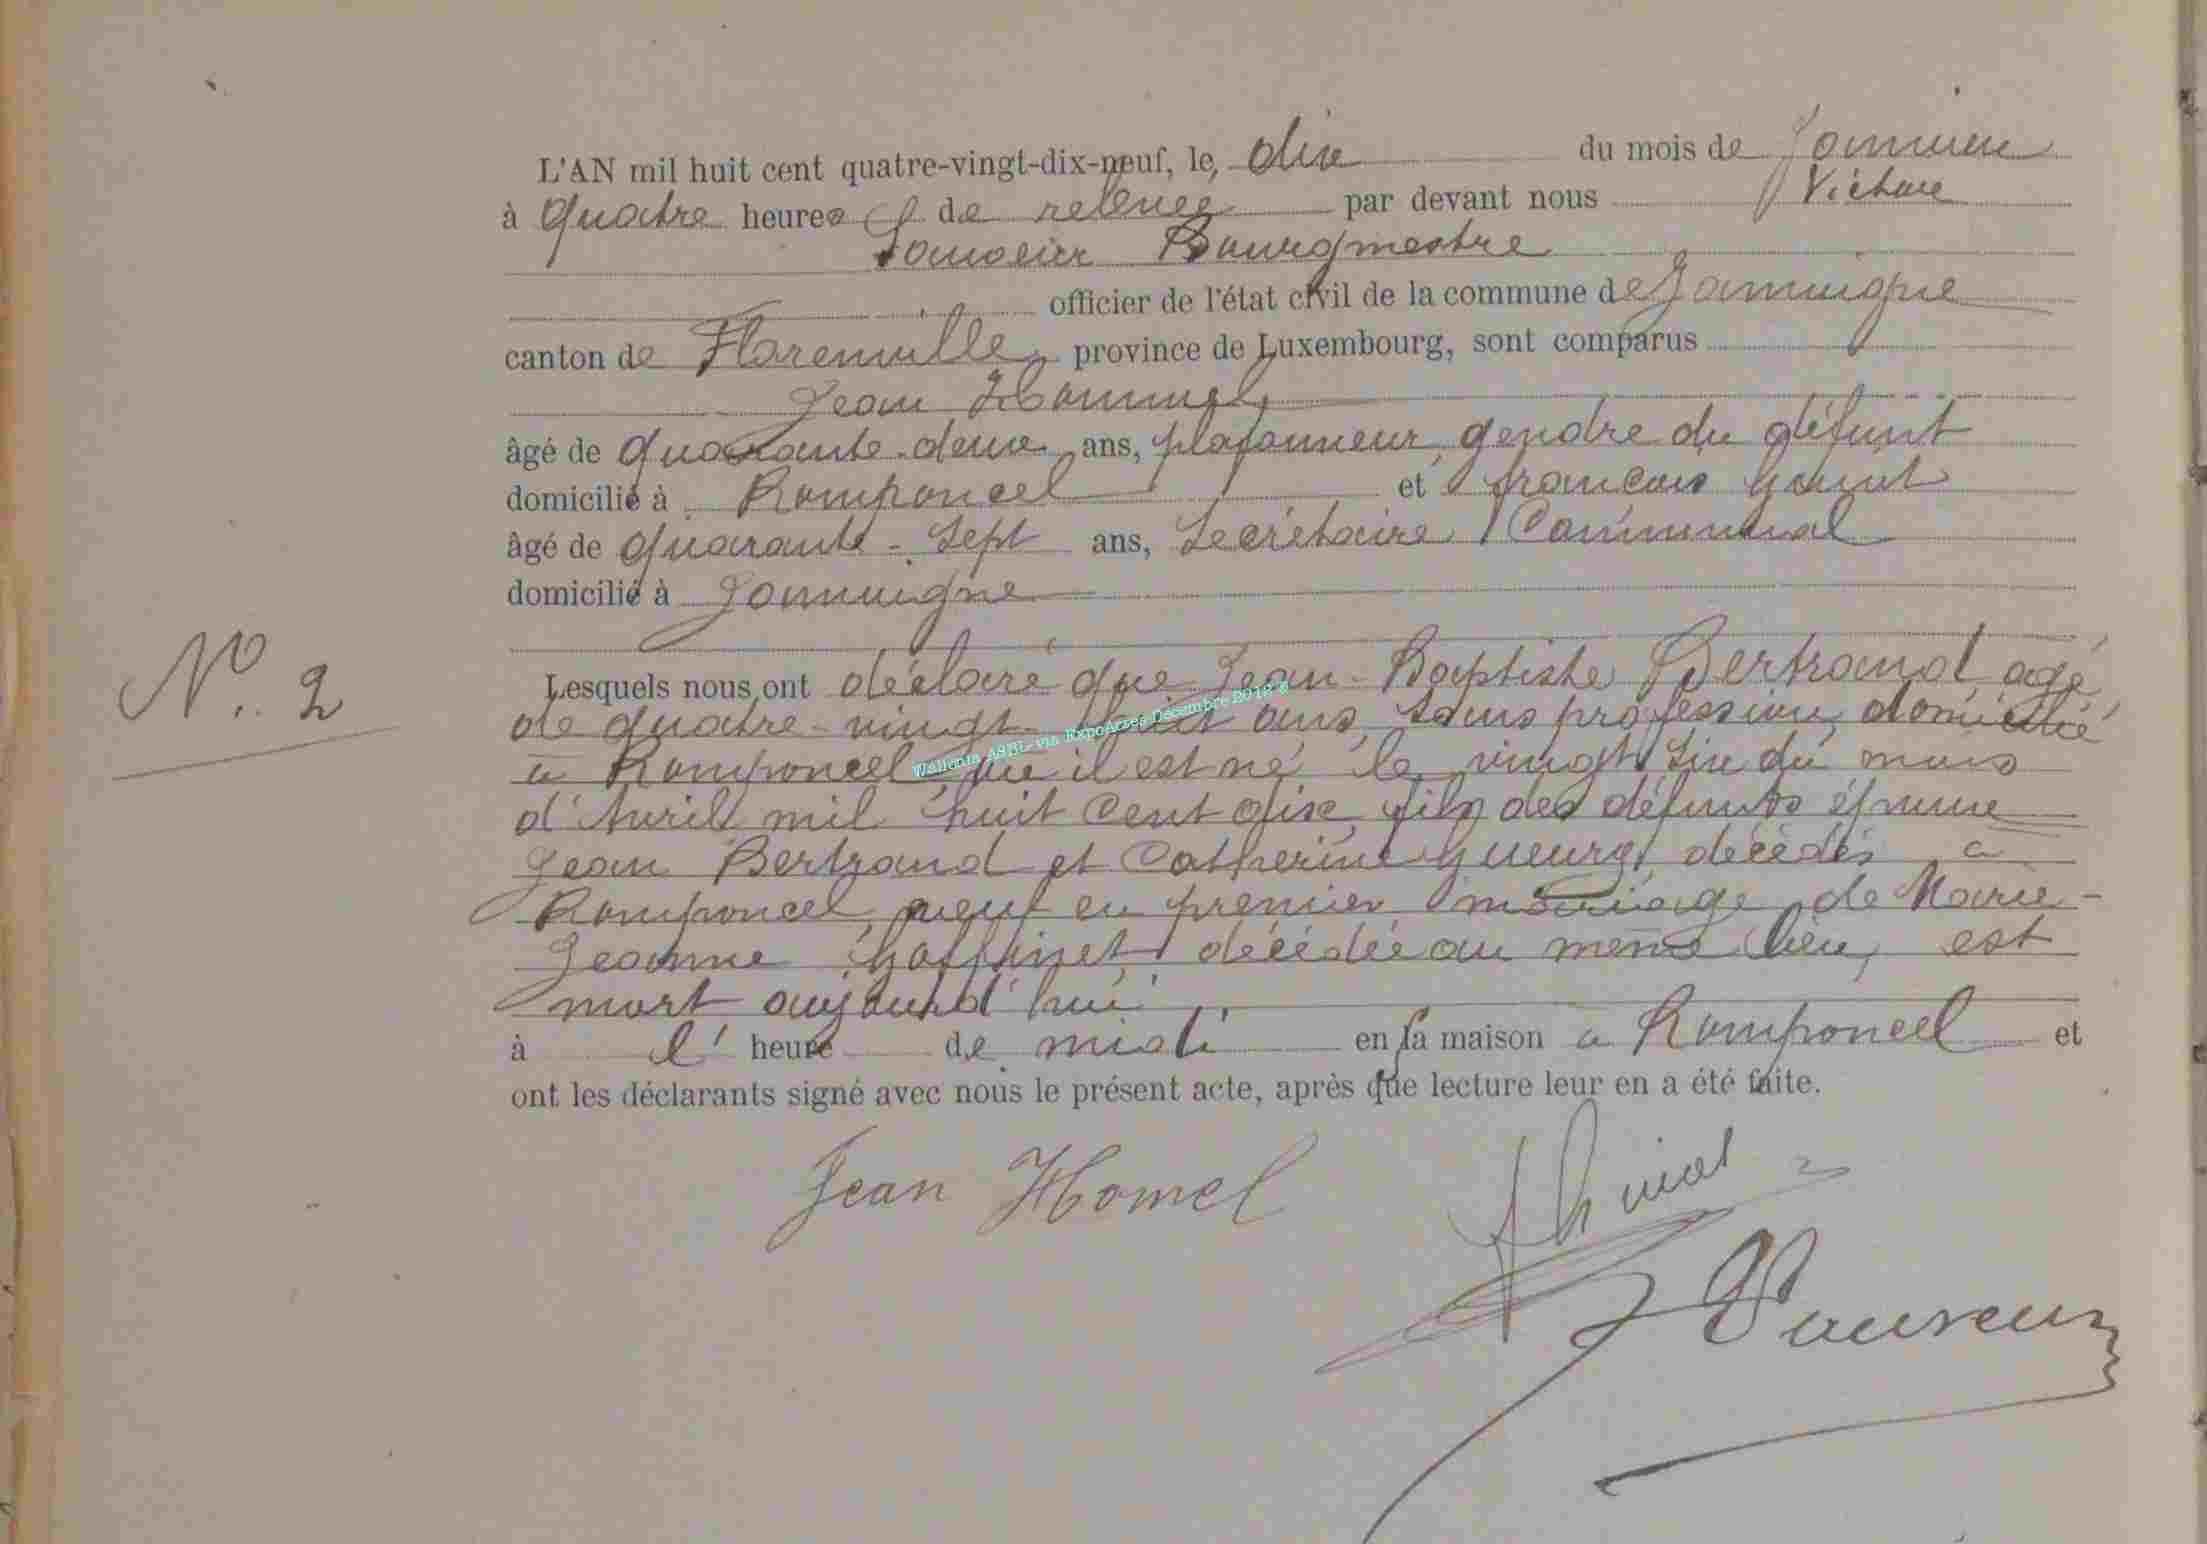 L'AN mil huit cent quatre-vingt-dix-neuf, le, dix du mois de Janvier
à quatre heures de relevée par devant nous Victore
Bourgmestre
officier de l'état civil de la commune de Jamoigne
canton de Florenville, province de Luxembourg, sont comparus
Jean Hommel,
âgé de quarante-deux ans, plafonneur, gendre du défunt
domicilié à Romponcel et françois
âgé de quarante-sept ans, Secrétaire Communal
domicilié à Jamoigne
N°. 2
Lesquels nous ont déclaré que Jean-Baptiste Bertrand, agé
de quatre-vingt huit ans, sans profession, domicilié
à Romponcel, où il est né le vingt six du mois
d'Avril mil huit cent dix, fils des défunts époux
Jean Bertrand et Catherine décédés à
Romponcel, veuf en premier mariage de Marie-
Jeanne décédée au même lieu, est
mort aujourd'hui
à l' heure de midi en sa maison à Romponcel et
ont les déclarants signé avec nous le présent acte, après que lecture leur en a été faite.
Jean Homel
Wallonia ASBL via ExpoActes Décembre 2012 ©